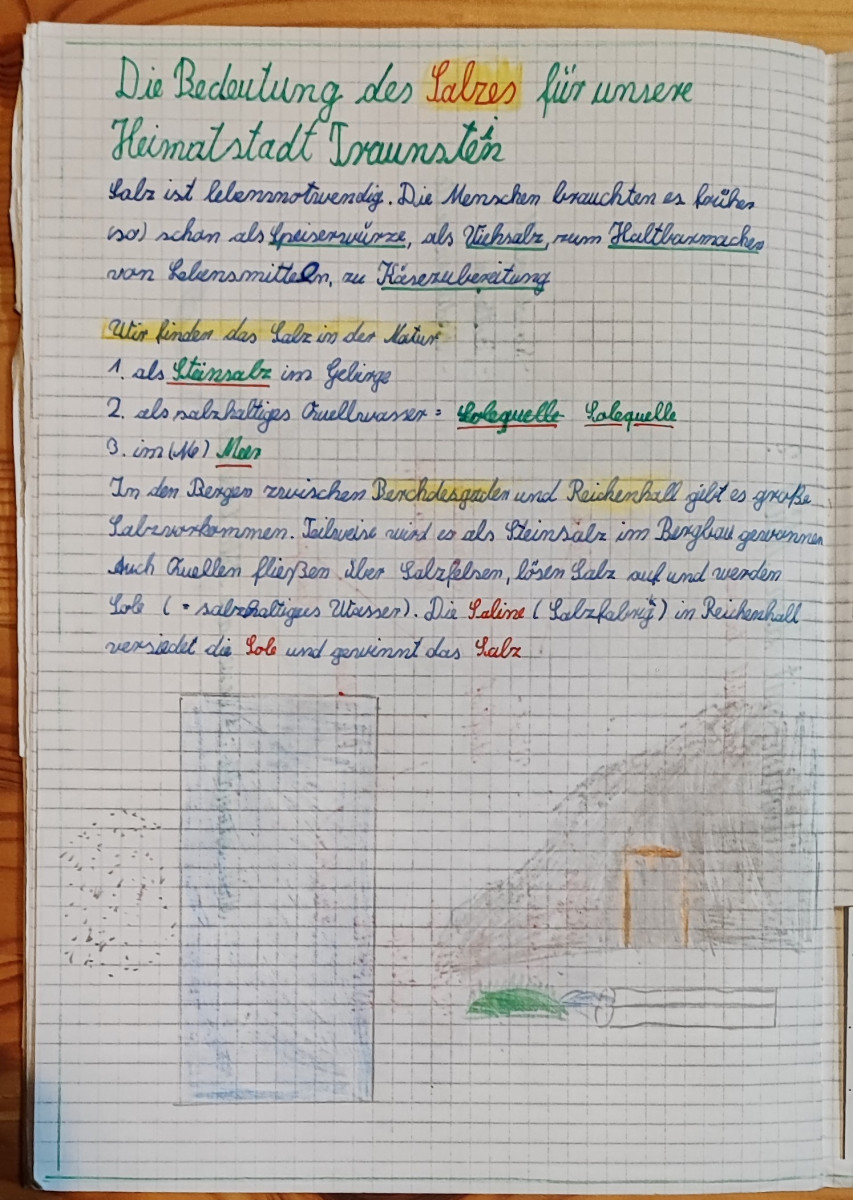 Die Bedeutung des Salzes für unsere
Heimatstadt Traunstein
Salz ist lebensnotwendig. Die Menschen brauchten es früher
(so) schon als Speisewürze, als Viehsalz, zum Haltbarmachen
von Lebensmitteln, zu Käsezubereitung
Wir finden das Salz in der Natur
1. als Steinsalz im Gebirge
2. als salzhaltiges Quellwasser = Solequelle Solequelle
3. im (Me) Meer
In den Bergen zwischen Berchdesgaden und Reichenhall gibt es große
Salzvorkommen. Teilweise wird es als Steinsalz im Bergbau gewonnen
Auch Quellen fließen über Salzfelsen, lösen Salz auf und werden
Sole (= salzhaltiges Wasser). Die Saline (Salzfabrig) in Reichenhall
versiedet die Sole und gewinnt das Salz